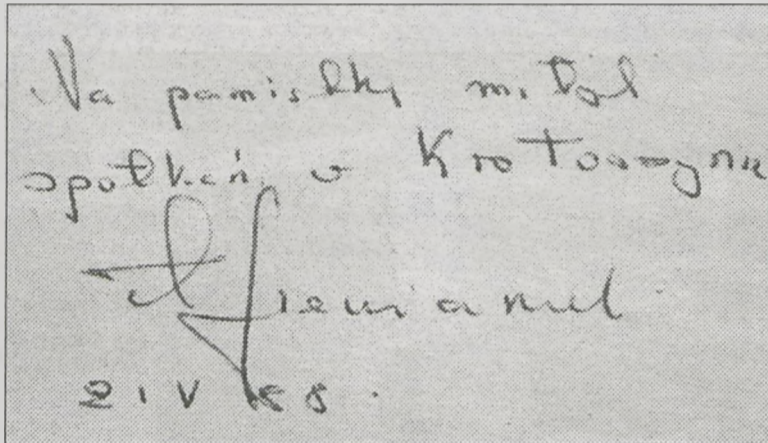 Na pamiątkę miłych
spotkań w Krotoszynie
21 V